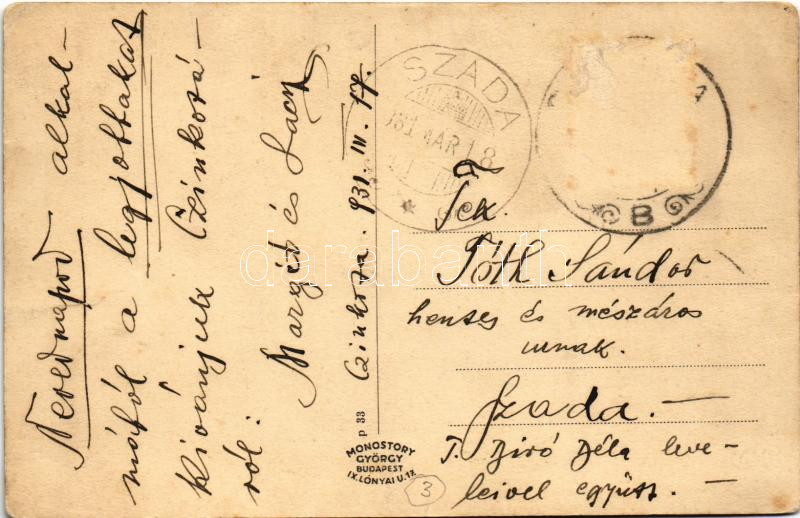 Nevednapod alkal-
mából a legjobbakat
kivánjuk Czinkotá-
ról.
Margit és Laci
Czinkota. 931. III. 17.
SZADA
931 MAR 18
B
Tek.
Tóth Sándor
hentes és mészáros
urnak.
Szada. —
T. Biró Béla leve-
leivel együtt. —
P 33
MONOSTORY
GYÖRGY
BUDAPEST
IX. LÓNYAI U. 17.
3
darabanth